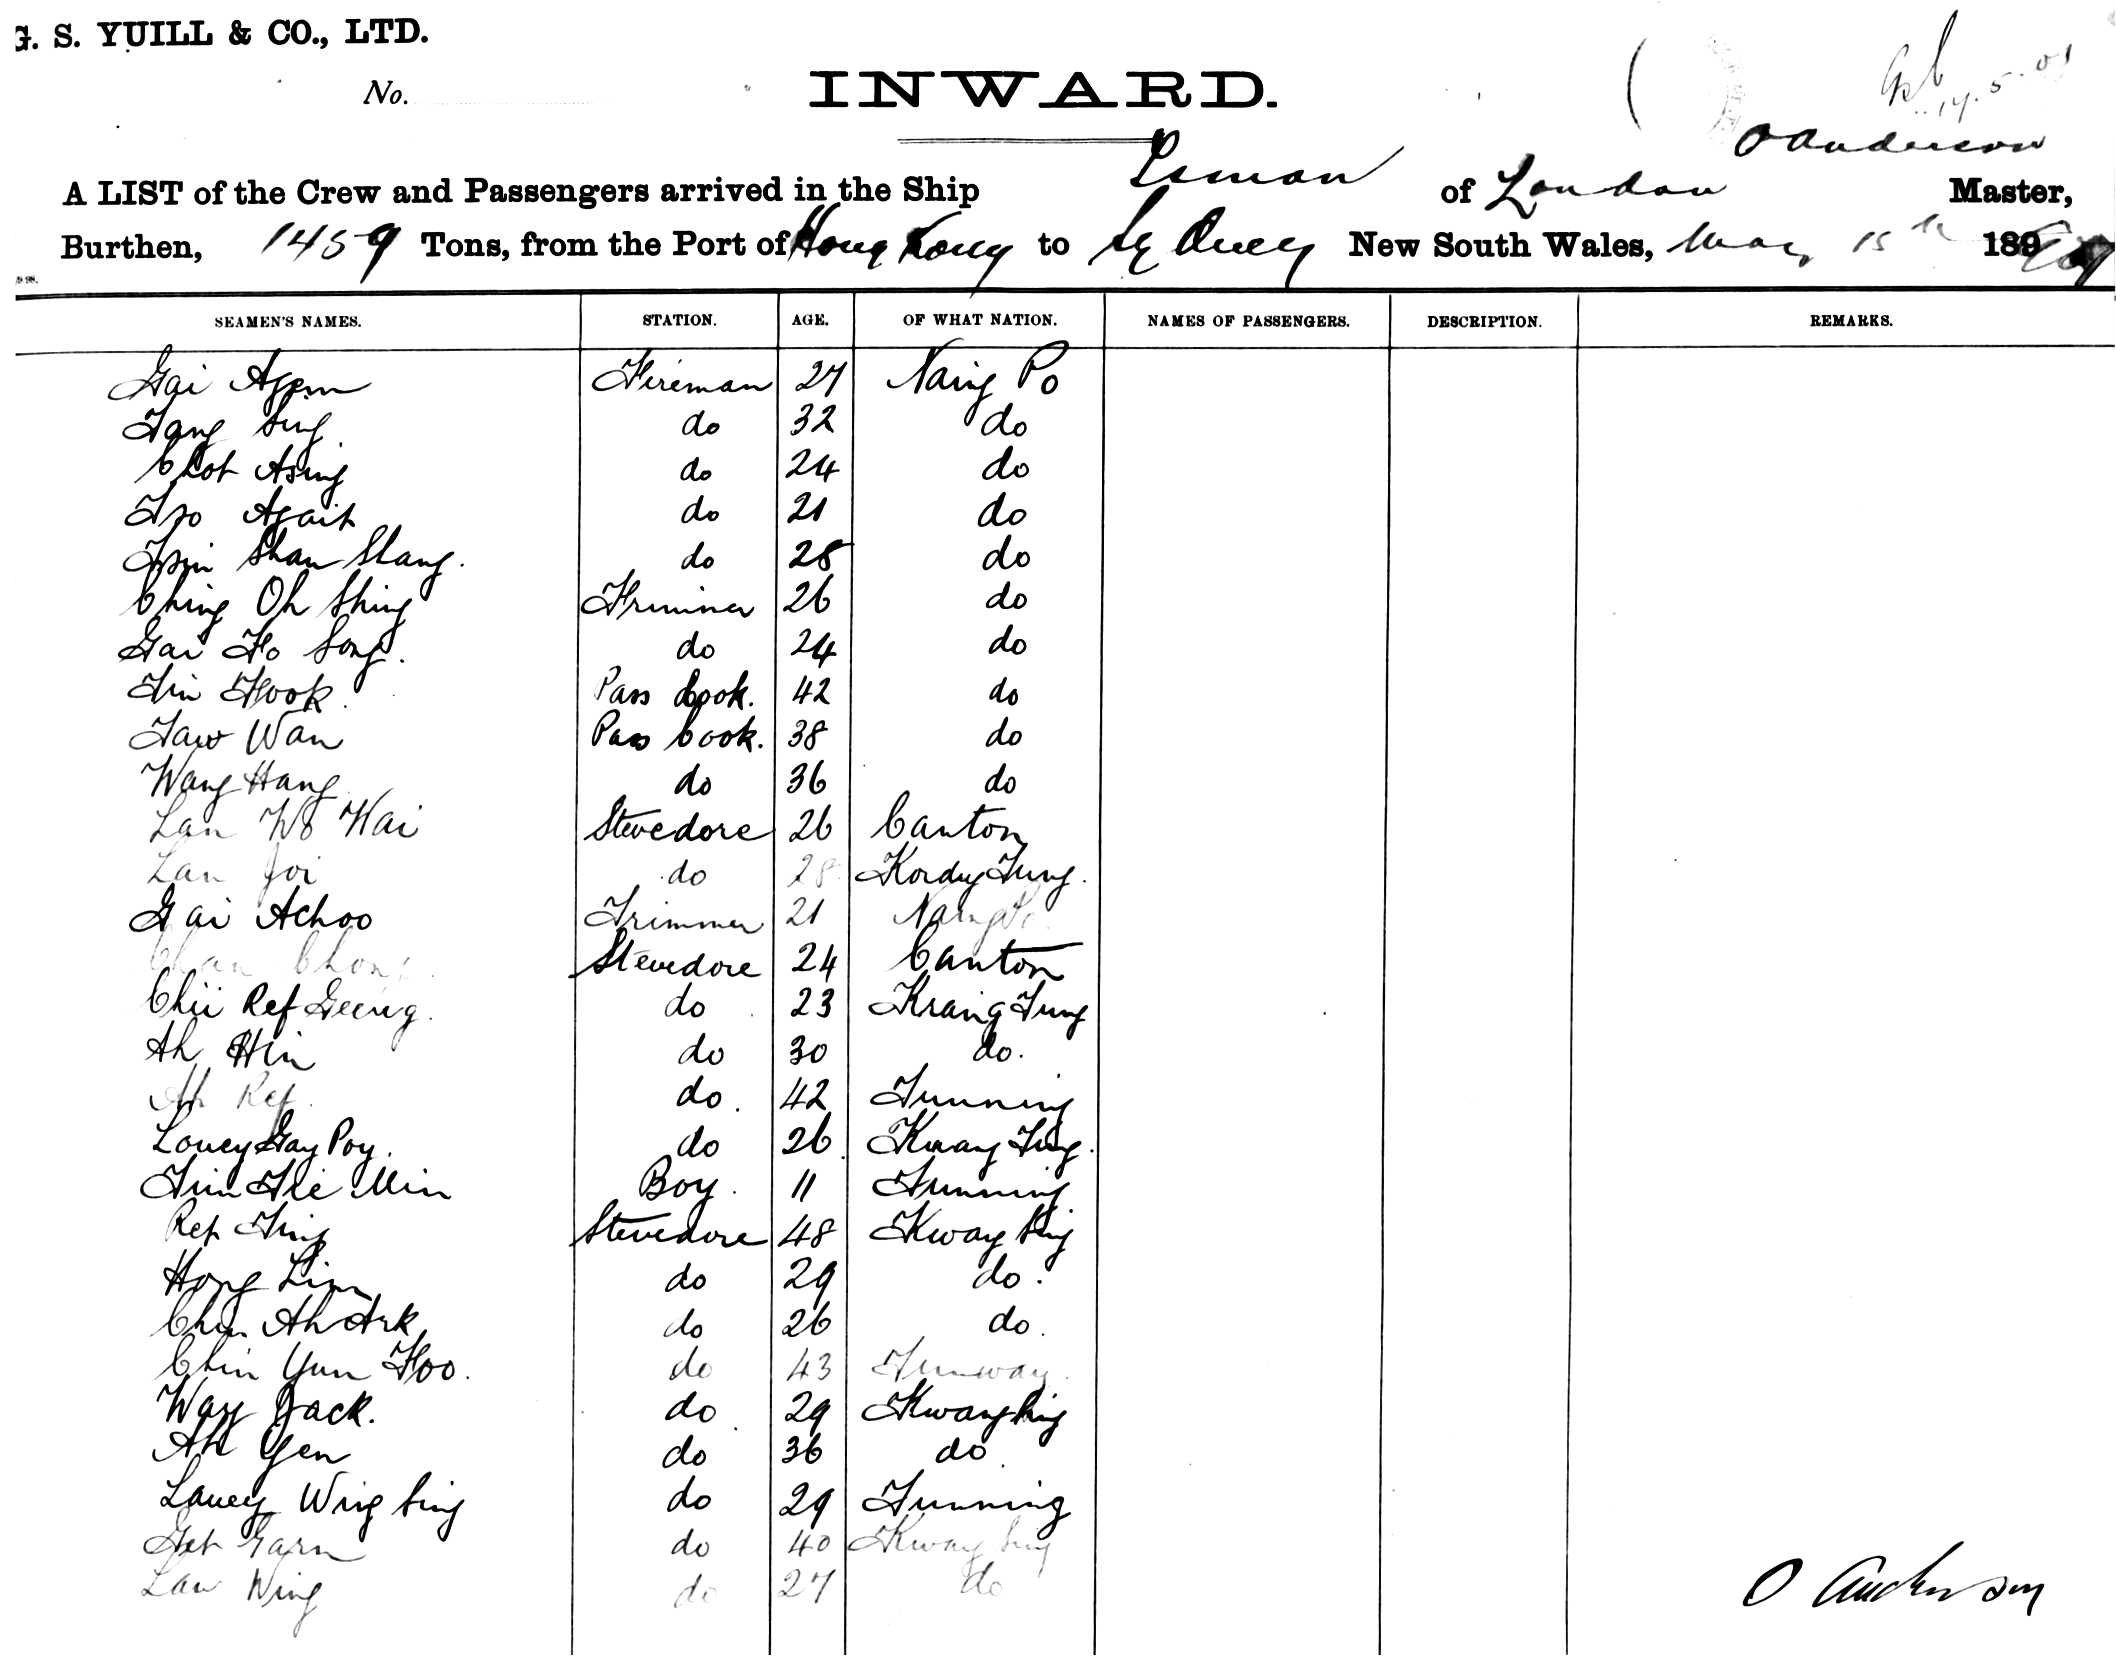 G. S. YUILL & CO., LTD.
No.
INWARD.
14.5.01
O Anderson
A LIST of the Crew and Passengers arrived in the Ship of London Master,
Burthen, 1459 Tons, from the Port of Hong Kong to Sydney New South Wales, May 15th 189
SEAMEN'S NAMES. STATION. AGE. OF WHAT NATION. NAMES OF PASSENGERS. DESCRIPTION. REMARKS.
Gai Agem Fireman 27 Naing Po
Tang Sing do 32 do
Chot Asing do 24 do
Tso Agait do 21 do
Tsin Shan Shang. do 28 do
Ching Oh Shing Trimmer 26 do
Gai Fo Song. do 24 do
Tin Fook Pass Cook. 42 do
Taw Wan Pass Cook. 38 do
Wang Hang do 36 do
Lan Wo Hai Stevedore 26 Canton
Lan Joi do 28 Tung.
Gai Achoo Trimmer 21 Naing Po
Chan Chong Stevedore 24 Canton
Chii Ref Geeng. do 23 Krang Tung
Ah Hin do 30 do.
Ah Ref. do. 42 Tunning
Louey Gay Poy. do 26 Kwang Ting.
Tim Tie Min Boy. 11 Tunning
Ref Ting Stevedore 48 Kwang Sing
Hong Lim do 29 do.
Chin Ah Ark do 26 do.
Chin Yun Foo. do 43 Tunway.
Way Jack. do 29 Kwang Sing
Ah Yen do 36 do
Lauey Wing Sing do 29 Tunning
Get Garn do 40 Kwang Sing
Law Wing do 27 do
O Anderson